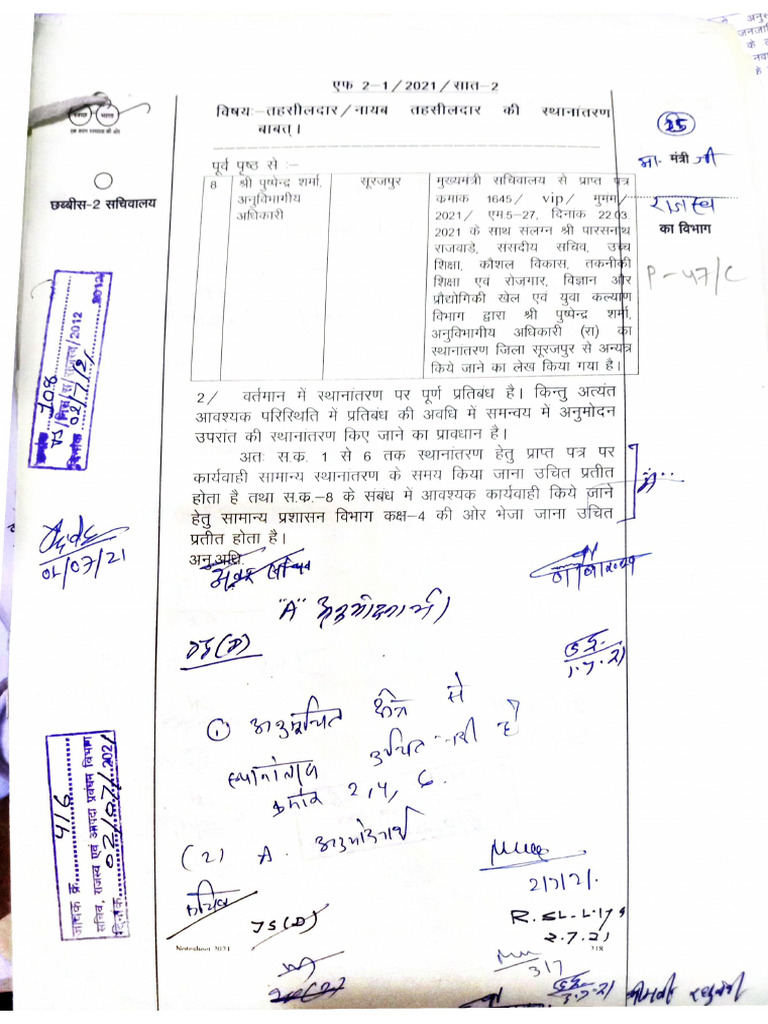 एफ 2-1/2021/सात-2
विषयः-तहसीलदार/नायब तहसीलदार की स्थानांतरण
बाबत्।
पूर्व पृष्ठ से :-
25
मा. मंत्री जी
राजस्व
का विभाग
P-47/C
स्वच्छ भारत
एक कदम स्वच्छता की ओर
छब्बीस-2 सचिवालय
8 श्री पुष्पेन्द्र शर्मा, सूरजपुर मुख्यमंत्री सचिवालय से प्राप्त पत्र
अनुविभागीय कमाक 1645/ vip/ मुमम/
अधिकारी 2021/ एम.5-27, दिनाक 22.03.
2021 के साथ संलग्न श्री पारसनाथ
राजवाडे, ससदीय सचिव, उच्च
शिक्षा, कौशल विकास, तकनीकी
शिक्षा एवं रोजगार, विज्ञान और
प्रौद्योगिकी खेल एवं युवा कल्याण
विभाग द्वारा श्री पुष्पेन्द्र शर्मा,
अनुविभागीय अधिकारी (रा) का
स्थानातरण जिला सूरजपुर से अन्यत्र
किये जाने का लेख किया गया है।
2/ वर्तमान में स्थानांतरण पर पूर्ण प्रतिबंध है। किन्तु अत्यंत
आवश्यक परिस्थिति में प्रतिबंध की अवधि में समन्वय में अनुमोदन
उपरांत की स्थानातरण किए जाने का प्रावधान है।
अतः स.क. 1 से 6 तक स्थानांतरण हेतु प्राप्त पत्र पर
कार्यवाही सामान्य स्थानातरण के समय किया जाना उचित प्रतीत
होता है तथा स.क.-8 के संबंध में आवश्यक कार्यवाही किये जाने
हेतु सामान्य प्रशासन विभाग कक्ष-4 की ओर भेजा जाना उचित
प्रतीत होता है।
अनु.अधि.
708
02/7/21
2012
01/07/21
"A" अनुमोदनार्थ।
1.7.21
① अनुसूचित क्षेत्र से
स्थानांतरण उचित नहीं है
क्रमांक 2,4, 6.
(2) A. अनुमोदनार्थ
2/7/21.
सचिव
JS(D)
2.7.21
3/7
3.7.21
जावक क्र. 416
सचिव, राजस्व एवं आपदा प्रबंधन विभाग
दिनांक 02/07/2021
Notesheet 2021
318